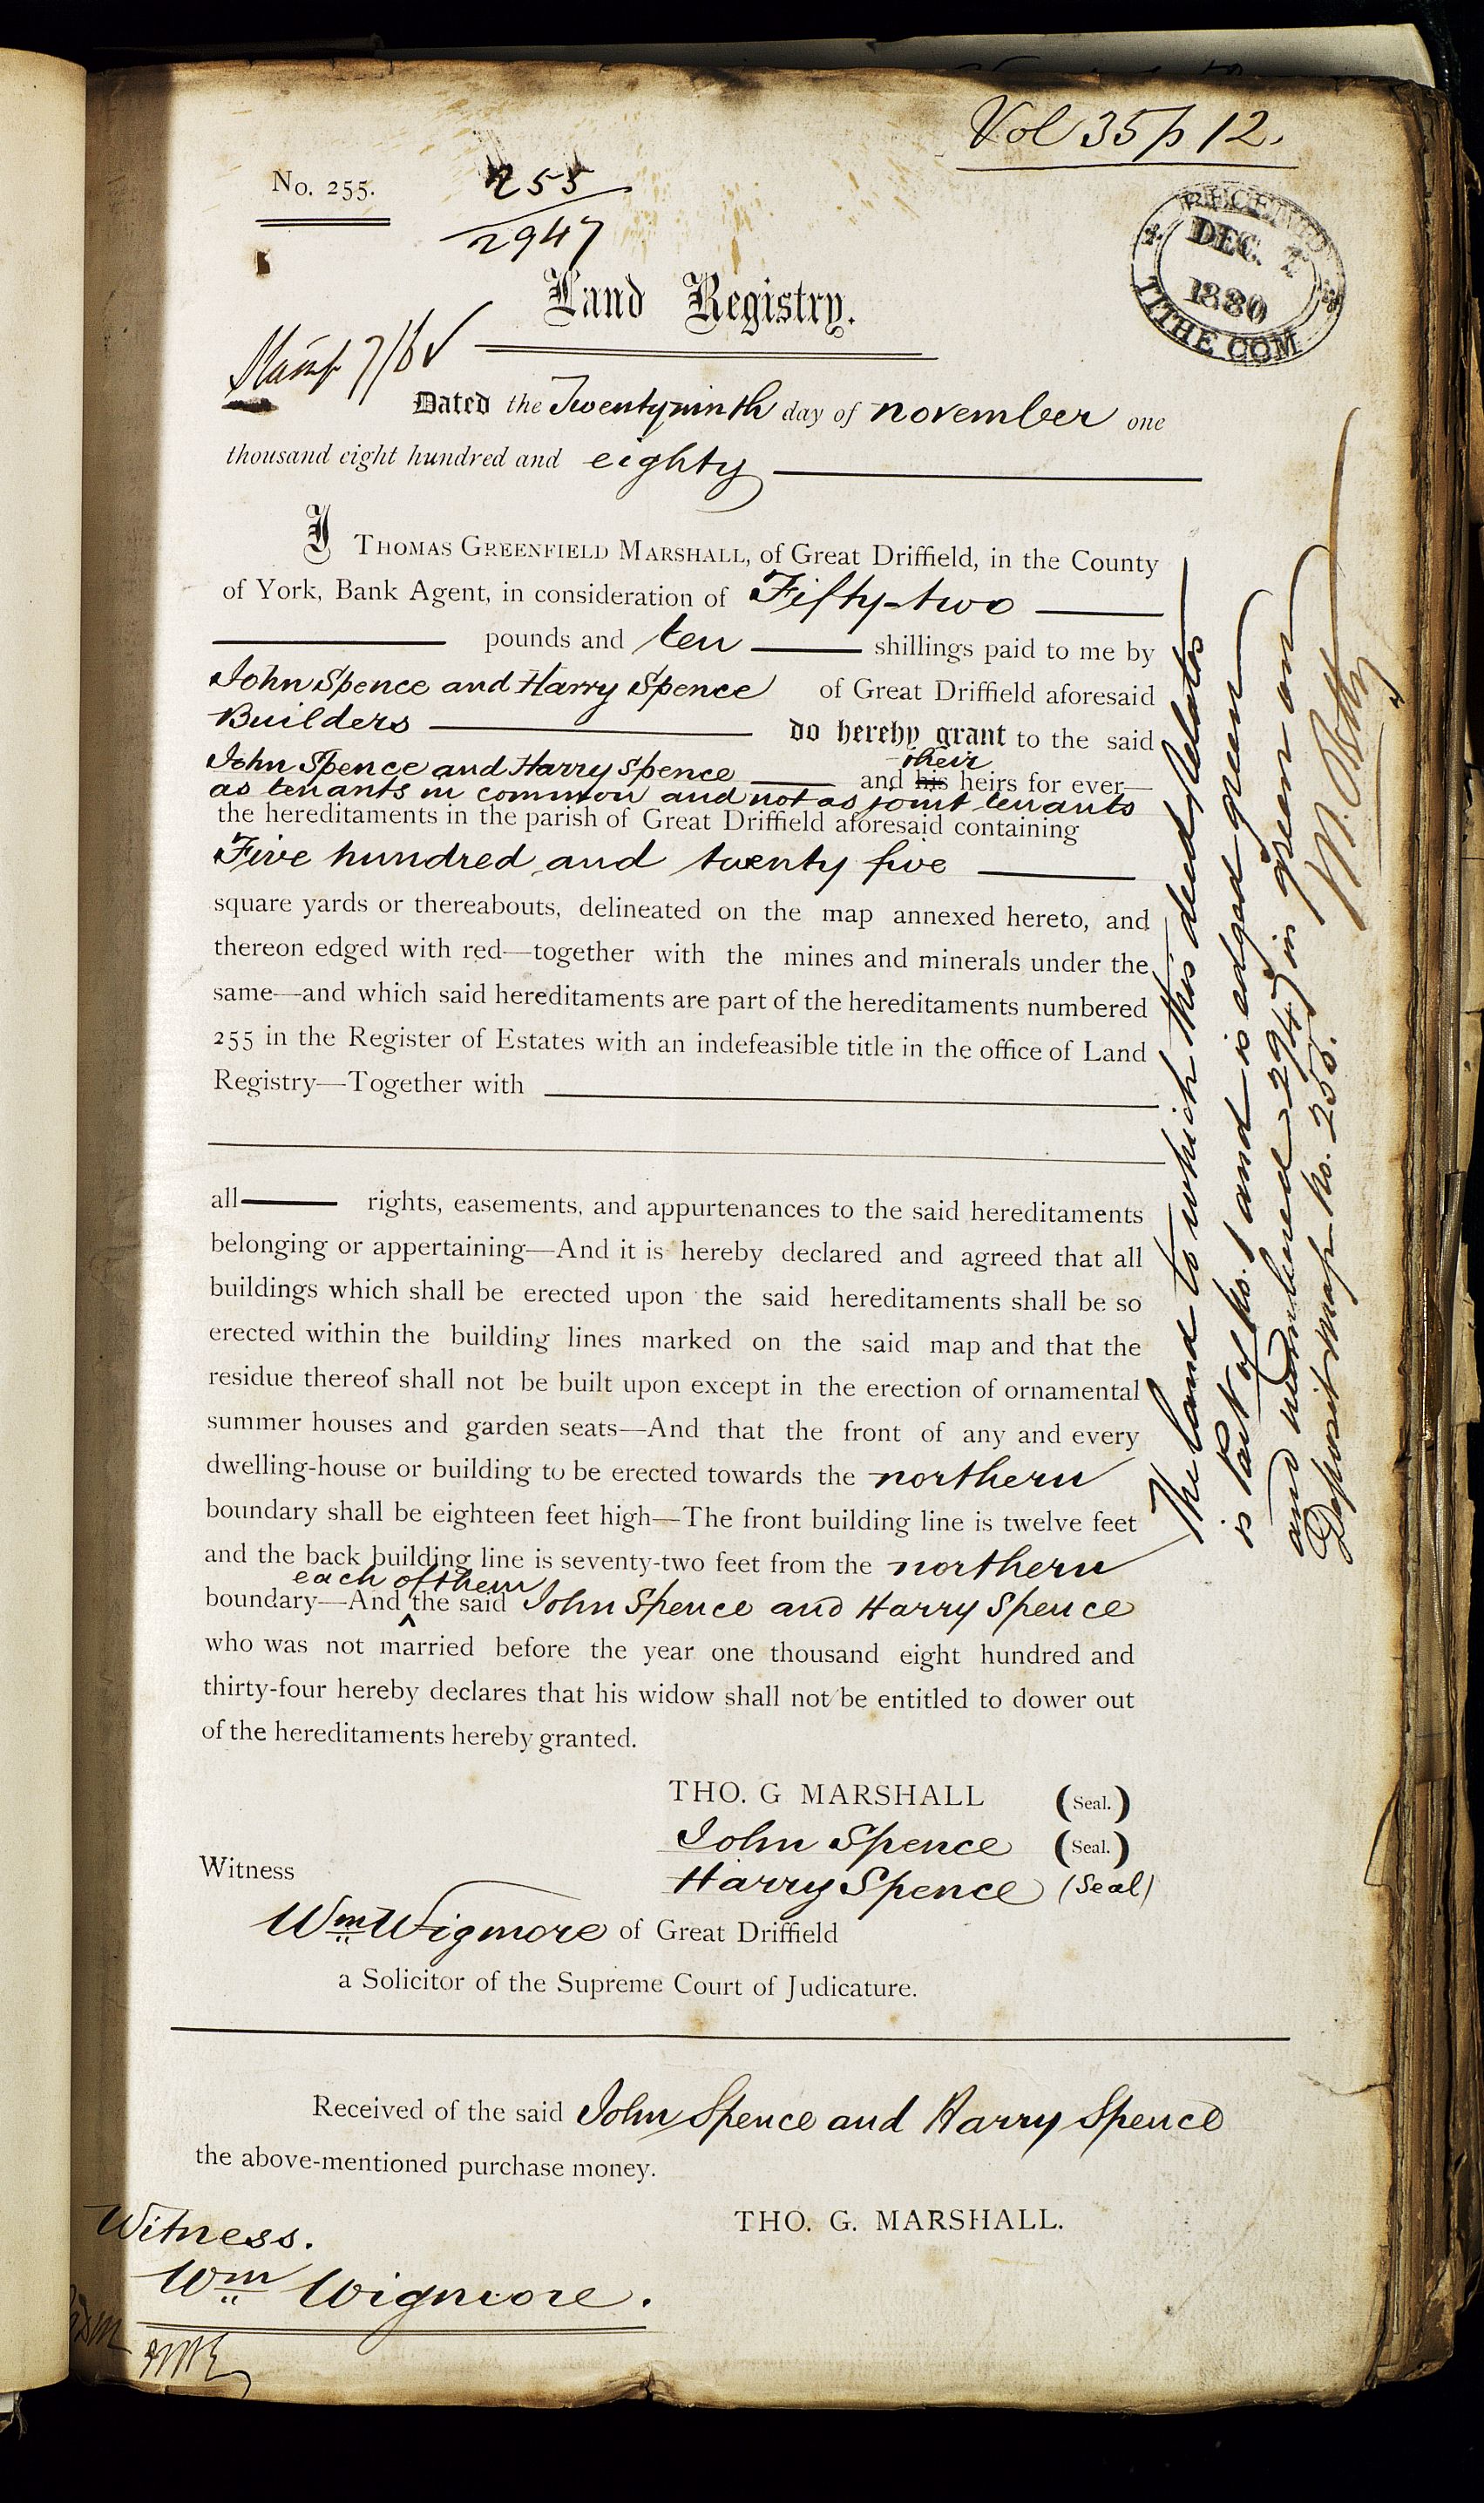 Vol 35 p 12.
No. 255.
255
2947
RECEIVED
DEC. 7
1880
TITHE COM
Land Registry.
Stamp 7/6 ✓
Dated the Twentyninth day of november one
thousand eight hundred and eighty
I THOMAS GREENFIELD MARSHALL, of Great Driffield, in the County
of York, Bank Agent, in consideration of Fifty-two
pounds and ten shillings paid to me by
John Spence and Harry Spence of Great Driffield aforesaid
Builders do hereby grant to the said
their
John Spence and Harry Spence and his heirs for ever—
as tenants in common and not as joint tenants
the hereditaments in the parish of Great Driffield aforesaid containing
Five hundred and twenty five
square yards or thereabouts, delineated on the map annexed hereto, and
thereon edged with red—together with the mines and minerals under the
same—and which said hereditaments are part of the hereditaments numbered
255 in the Register of Estates with an indefeasible title in the office of Land
Registry—Together with
all rights, easements, and appurtenances to the said hereditaments
belonging or appertaining—And it is hereby declared and agreed that all
buildings which shall be erected upon the said hereditaments shall be so
erected within the building lines marked on the said map and that the
residue thereof shall not be built upon except in the erection of ornamental
summer houses and garden seats—And that the front of any and every
dwelling-house or building to be erected towards the northern
boundary shall be eighteen feet high—The front building line is twelve feet
and the back building line is seventy-two feet from the northern
each of them
boundary—And ^ the said John Spence and Harry Spence
who was not married before the year one thousand eight hundred and
thirty-four hereby declares that his widow shall not be entitled to dower out
of the hereditaments hereby granted.
THO. G MARSHALL (Seal.)
John Spence (Seal.)
Witness
Harry Spence (Seal)
Wm Wigmore of Great Driffield
a Solicitor of the Supreme Court of Judicature.
Received of the said John Spence and Harry Spence
the above-mentioned purchase money.
THO. G. MARSHALL.
Witness.
Wm Wigmore.
The land to which this deed relates
is Part of No. 1 and is edged green
and numbered 2947 in green on
Deposit Map No. 255.